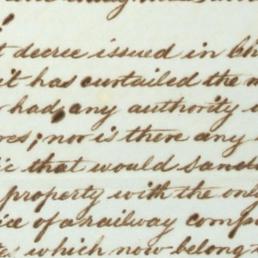 t decree issued in Chi
it has curtailed the m
had, any authority
res; nor is there any
ic that would sanct
property with the only
ice of a railway comp
which now belong t